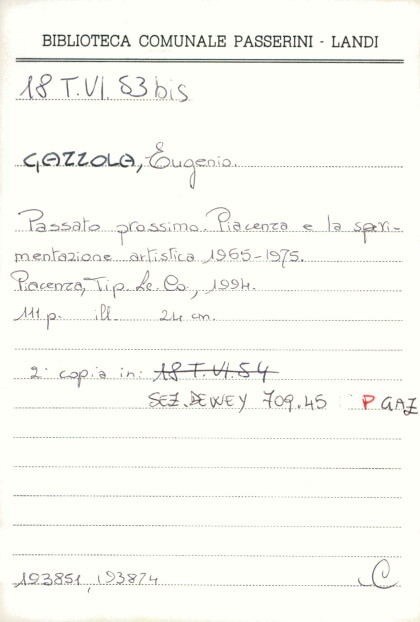 BIBLIOTECA COMUNALE PASSERINI - LANDI
18 T.VI. 53 bis
GAZZOLA, Eugenio.
Passato prossimo. Piacenza e la speri-
mentazione artistica 1965-1975.
Piacenza, Tip. Le. Co, 1994.
111 p. ill. 24 cm.
2ª copia in: 18 T.VI.54
SEZ. DEWEY 709.45 P GAZ
193851, 193874
C